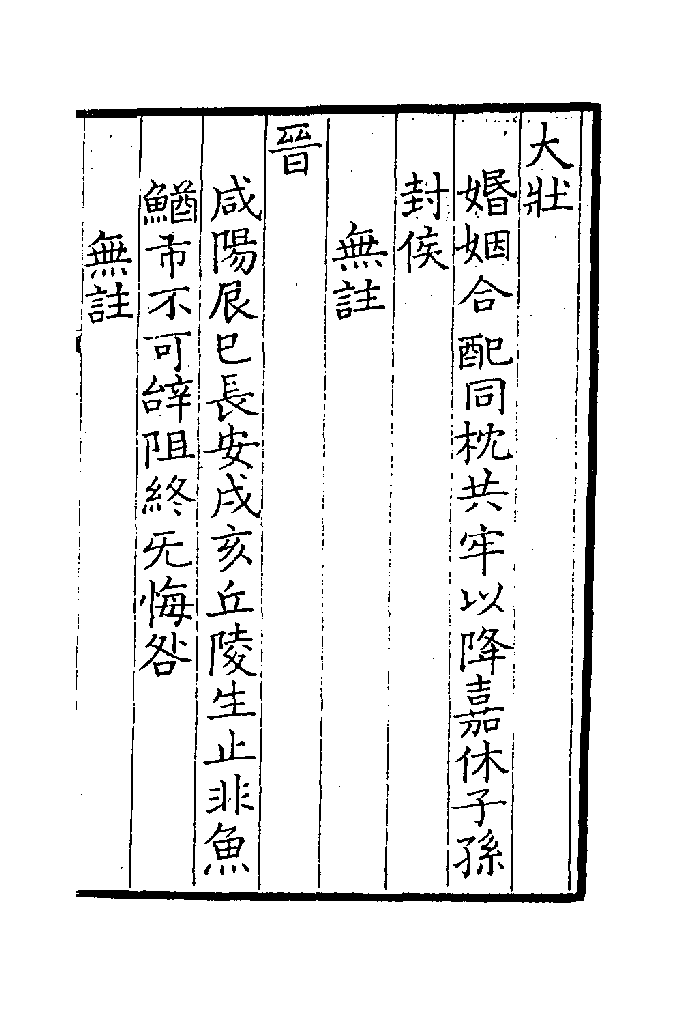 大壯
婚姻合配同枕共牢以降嘉休子孫
封侯
無註
晉
咸陽辰巳長安戌亥丘陵生止非魚
鰌市不可辭阻終无悔咎
無註